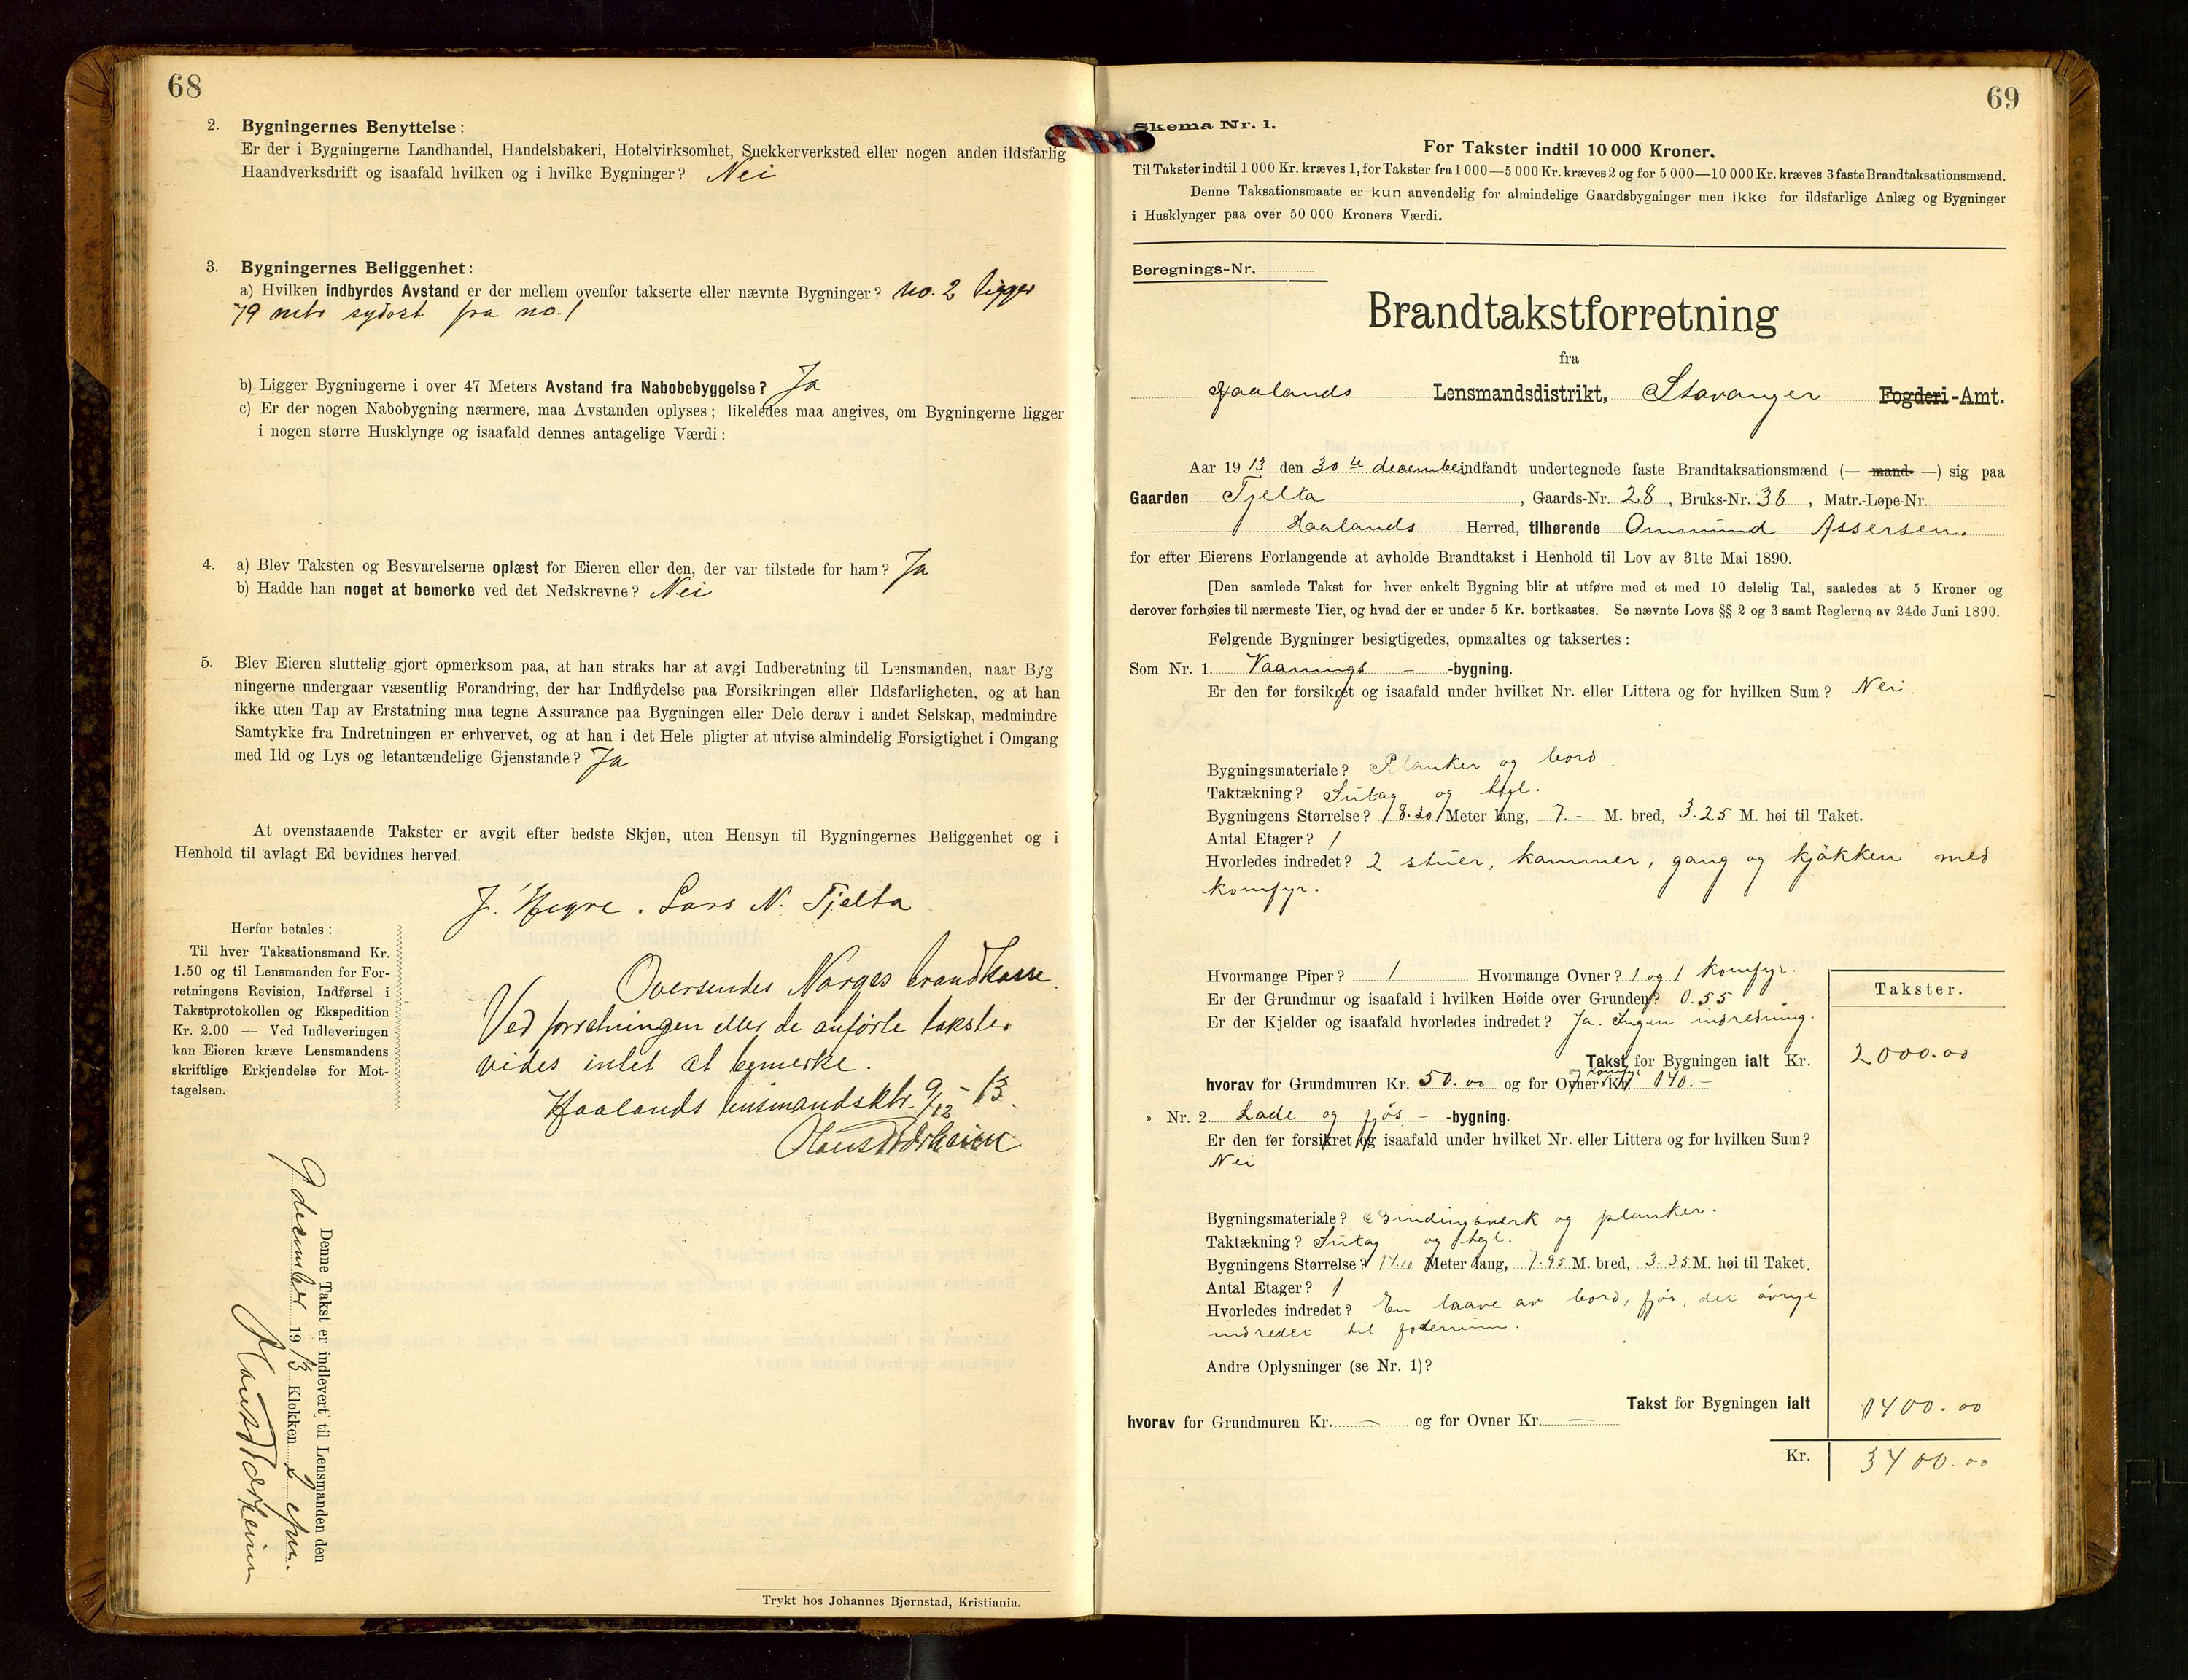 68
2. Bygningernes Benyttelse:
Er der i Bygningerne Landhandel, Handelsbakeri, Hotelvirksomhet, Snekkerverksted eller nogen anden ildsfarlig
Haandverksdrift og isaafald hvilken og i hvilke Bygninger? Nei
3. Bygningernes Beliggenhet:
a) Hvilken indbyrdes Avstand er der mellem ovenfor takserte eller nævnte Bygninger? no. 2 ligger
79 mtr sydost fra no. 1
b) Ligger Bygningerne i over 47 Meters Avstand fra Nabobebyggelse? Ja
c) Er der nogen Nabobygning nærmere, maa Avstanden oplyses; likeledes maa angives, om Bygningerne ligger
i nogen større Husklynge og isaafald dennes antagelige Værdi:
4. a) Blev Taksten og Besvarelserne oplæst for Eieren eller den, der var tilstede for ham? Ja
b) Hadde han noget at bemerke ved det Nedskrevne? Nei
5. Blev Eieren sluttelig gjort opmerksom paa, at han straks har at avgi Indberetning til Lensmanden, naar Byg
ningerne undergaar væsentlig Forandring, der har Indflydelse paa Forsikringen eller Ildsfarligheten, og at han
ikke uten Tap av Erstatning maa tegne Assurance paa Bygningen eller Dele derav i andet Selskap, medmindre
Samtykke fra Indretningen er erhvervet, og at han i det Hele pligter at utvise almindelig Forsigtighet i Omgang
med Ild og Lys og letantændelige Gjenstande? Ja
At ovenstaaende Takster er avgit efter bedste Skjøn, uten Hensyn til Bygningernes Beliggenhet og i
Henhold til avlagt Ed bevidnes herved.
J. Hegre. Lars N. Tjelta
Herfor betales:
Til hver Taksationsmand Kr.
1.50 og til Lensmanden for For-
retningens Revision, Indførsel i
Takstprotokollen og Ekspedition
Kr. 2.00 — Ved Indleveringen
kan Eieren kræve Lensmandens
skriftlige Erkjendelse for Mot-
tagelsen.
Oversendes Norges brandkasse.
Ved forretningen eller de anførte takster
vides intet at bemerke.
Haalands lensmandsktr. 9/12 - 13.
Denne Takst er indlevert til Lensmanden den
9 desember 1913 Klokken 9 efm.
Trykt hos Johannes Bjørnstad, Kristiania.
69
Skema Nr. 1.
For Takster indtil 10 000 Kroner.
Til Takster indtil 1 000 Kr. kræves 1, for Takster fra 1 000—5 000 Kr. kræves 2 og for 5 000—10 000 Kr. kræves 3 faste Brandtaksationsmænd.
Denne Taksationsmaate er kun anvendelig for almindelige Gaardsbygninger men ikke for ildsfarlige Anlæg og Bygninger
i Husklynger paa over 50 000 Kroners Værdi.
Beregnings-Nr.
Brandtakstforretning
fra
Haalands Lensmandsdistrikt, Stavanger Fogderi-Amt.
Aar 1913 den 30te december indfandt undertegnede faste Brandtaksationsmænd (— mand —) sig paa
Gaarden Tjelta, Gaards-Nr. 28, Bruks-Nr. 38, Matr.-Løpe-Nr.
Haalands Herred, tilhørende Ommund Assersen.
for efter Eierens Forlangende at avholde Brandtakst i Henhold til Lov av 31te Mai 1890.
[Den samlede Takst for hver enkelt Bygning blir at utføre med et med 10 delelig Tal, saaledes at 5 Kroner og
derover forhøies til nærmeste Tier, og hvad der er under 5 Kr. bortkastes. Se nævnte Lovs §§ 2 og 3 samt Reglerne av 24de Juni 1890.
Følgende Bygninger besigtigedes, opmaaltes og taksertes:
Som Nr. 1. Vaanings - -bygning.
Er den før forsikret og isaafald under hvilket Nr. eller Littera og for hvilken Sum? Nei.
Bygningsmateriale? Planker og bord.
Taktækning? Sutag og tegl.
Bygningens Størrelse? 8.20 Meter lang, 7.- M. bred, 3.25 M. høi til Taket.
Antal Etager? 1
Hvorledes indredet? 2 stuer, kammer, gang og kjøkken med
komfyr.
Hvormange Piper? 1 Hvormange Ovner? 1 og 1 komfyr.
Er der Grundmur og isaafald i hvilken Høide over Grunden? 0.55
Er der Kjelder og isaafald hvorledes indredet? Ja. Ingen indredning.
Takster.
Takst for Bygningen ialt Kr. 2000.00
hvorav for Grundmuren Kr. 50.00 og for Ovner og komfyr Kr. 140.-
» Nr. 2. Lade og fjøs - -bygning.
Er den før forsikret og isaafald under hvilket Nr. eller Littera og for hvilken Sum?
Nei
Bygningsmateriale? Bindingsverk og planker.
Taktækning? Sutag og tegl.
Bygningens Størrelse? 14.10 Meter lang, 7.95 M. bred, 3.35 M. høi til Taket.
Antal Etager? 1
Hvorledes indredet? En laave av bord, fjøs, det øvrige
indredet til foderrum.
Andre Oplysninger (se Nr. 1)?
Takst for Bygningen ialt 1400.00
hvorav for Grundmuren Kr. — og for Ovner Kr. —
Kr. 3400.00